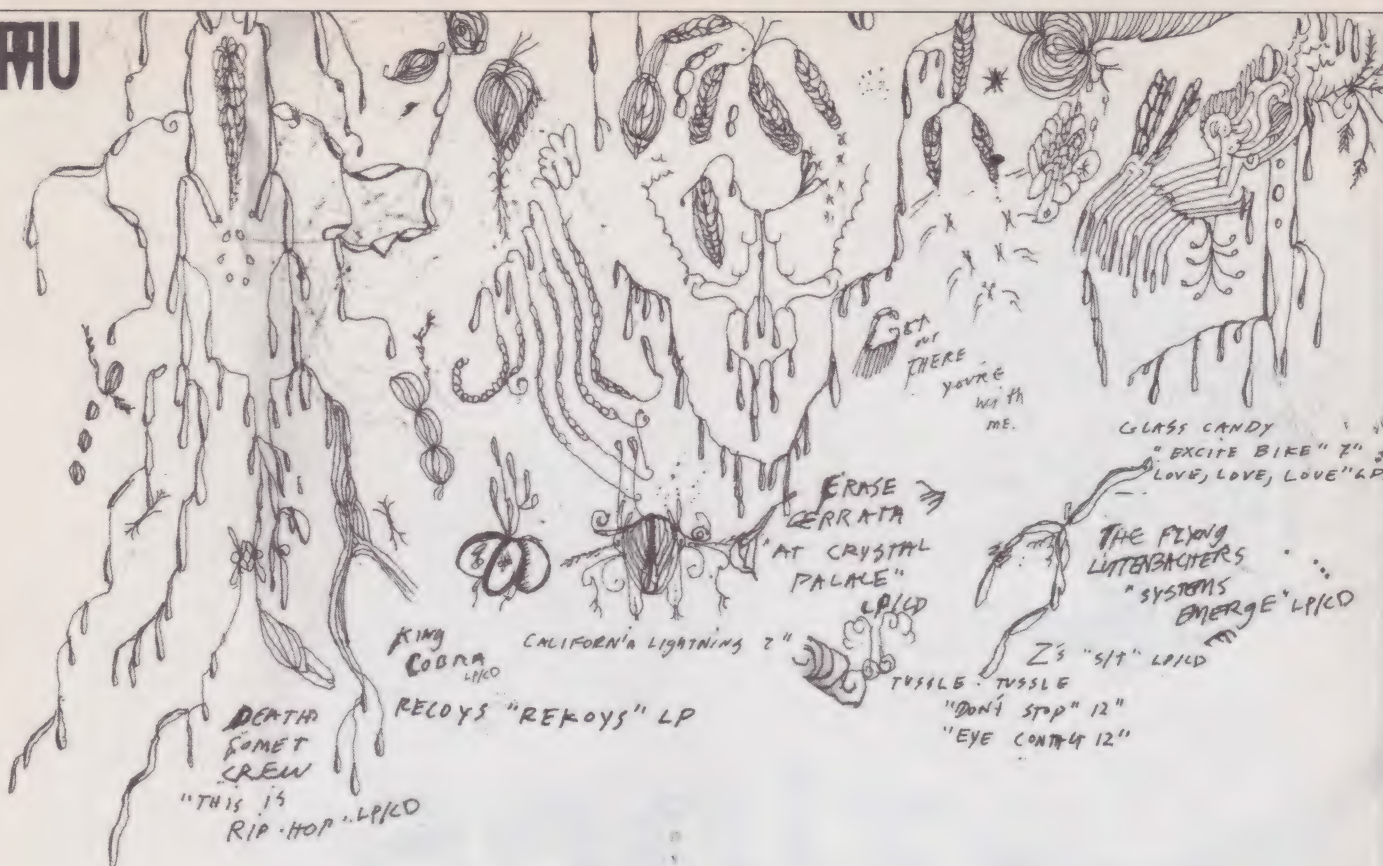 Get
out
THERE
YOURE
with
ME.
GLASS CANDY
"EXCITE BIKE" 7"
LOVE, LOVE, LOVE" LP
ERASE
ERRATA
"AT CRYSTAL
PALACE"
LP/CD
THE FLYING
LUTTENBACHERS
"SYSTEMS
EMERGE" LP/CD
KING
COBRA
LP/CD
CALIFORNIA LIGHTNING 7"
Z's "S/T" LP/CD
TUSSLE · TUSSLE
"DON'T STOP" 12"
"EYE CONTACT 12"
RECOYS "REKOYS" LP
DEATH
COMET
CREW
"THIS IS
RIP·HOP" LP/CD